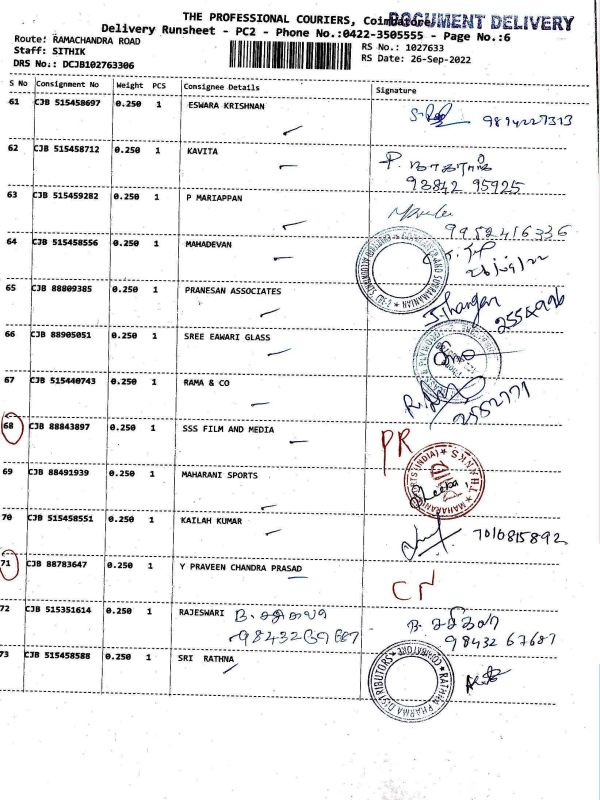 THE PROFESSIONAL COURIERS, Coimbatore
DOCUMENT DELIVERY
Delivery Runsheet - PC2 - Phone No.:0422-3505555 - Page No.:6
Route: RAMACHANDRA ROAD
Staff: SITHIK
DRS No.: DCJB102763306
RS No.: 1027633
RS Date: 26-Sep-2022
S No Consignment No Weight PCS Consignee Details Signature
61 CJB 515458697 0.250 1 ESWARA KRISHNAN 9894227313
62 CJB 515458712 0.250 1 KAVITA P. நாகராஜ்
93842 95925
63 CJB 515459282 0.250 1 P MARIAPPAN
9952416336
64 CJB 515458556 0.250 1 MAHADEVAN
26/09/22
65 CJB 88809385 0.250 1 PRANESAN ASSOCIATES
2554926
66 CJB 88905051 0.250 1 SREE EAWARI GLASS
67 CJB 515440743 0.250 1 RAMA & CO
2552771
68 CJB 88843897 0.250 1 SSS FILM AND MEDIA PR
69 CJB 88491939 0.250 1 MAHARANI SPORTS
MAHARANI SPORTS (INDIA) ★ T.H.N.K.S
Sheeba
70 CJB 515458551 0.250 1 KAILAH KUMAR 7010815892
71 CJB 88783647 0.250 1 Y PRAVEEN CHANDRA PRASAD CN
72 CJB 515351614 0.250 1 RAJESWARI B. சசிகலா B. சசிகலா
9843267687 98432 67687
73 CJB 515458588 0.250 1 SRI RATHNA
RATHNA PHARMA DISTRIBUTORS ★ COIMBATORE ★